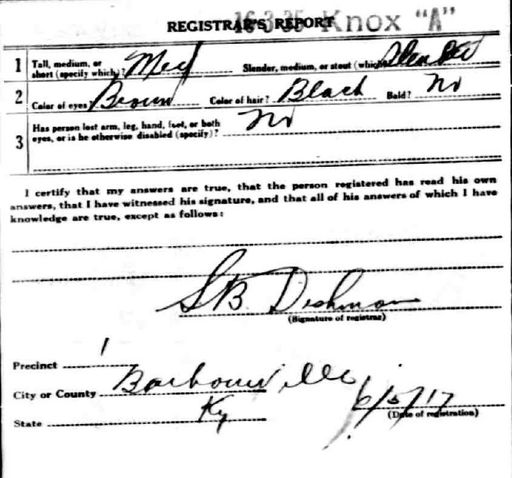 REGISTRAR'S REPORT 16-3-35 Knox "A"
1 Tall, medium, or short (specify which)? Med Slender, medium, or stout (which)? Slender
2 Color of eyes Brown Color of hair? Black Bald? No
3 Has person lost arm, leg, hand, foot, or both eyes, or is he otherwise disabled (specify)? No
I certify that my answers are true, that the person registered has read his own
answers, that I have witnessed his signature, and that all of his answers of which I have
knowledge are true, except as follows:
S B Dishman
(Signature of registrar)
Precinct 1
City or County Barbourville
State Ky
6/5/17
(Date of registration)